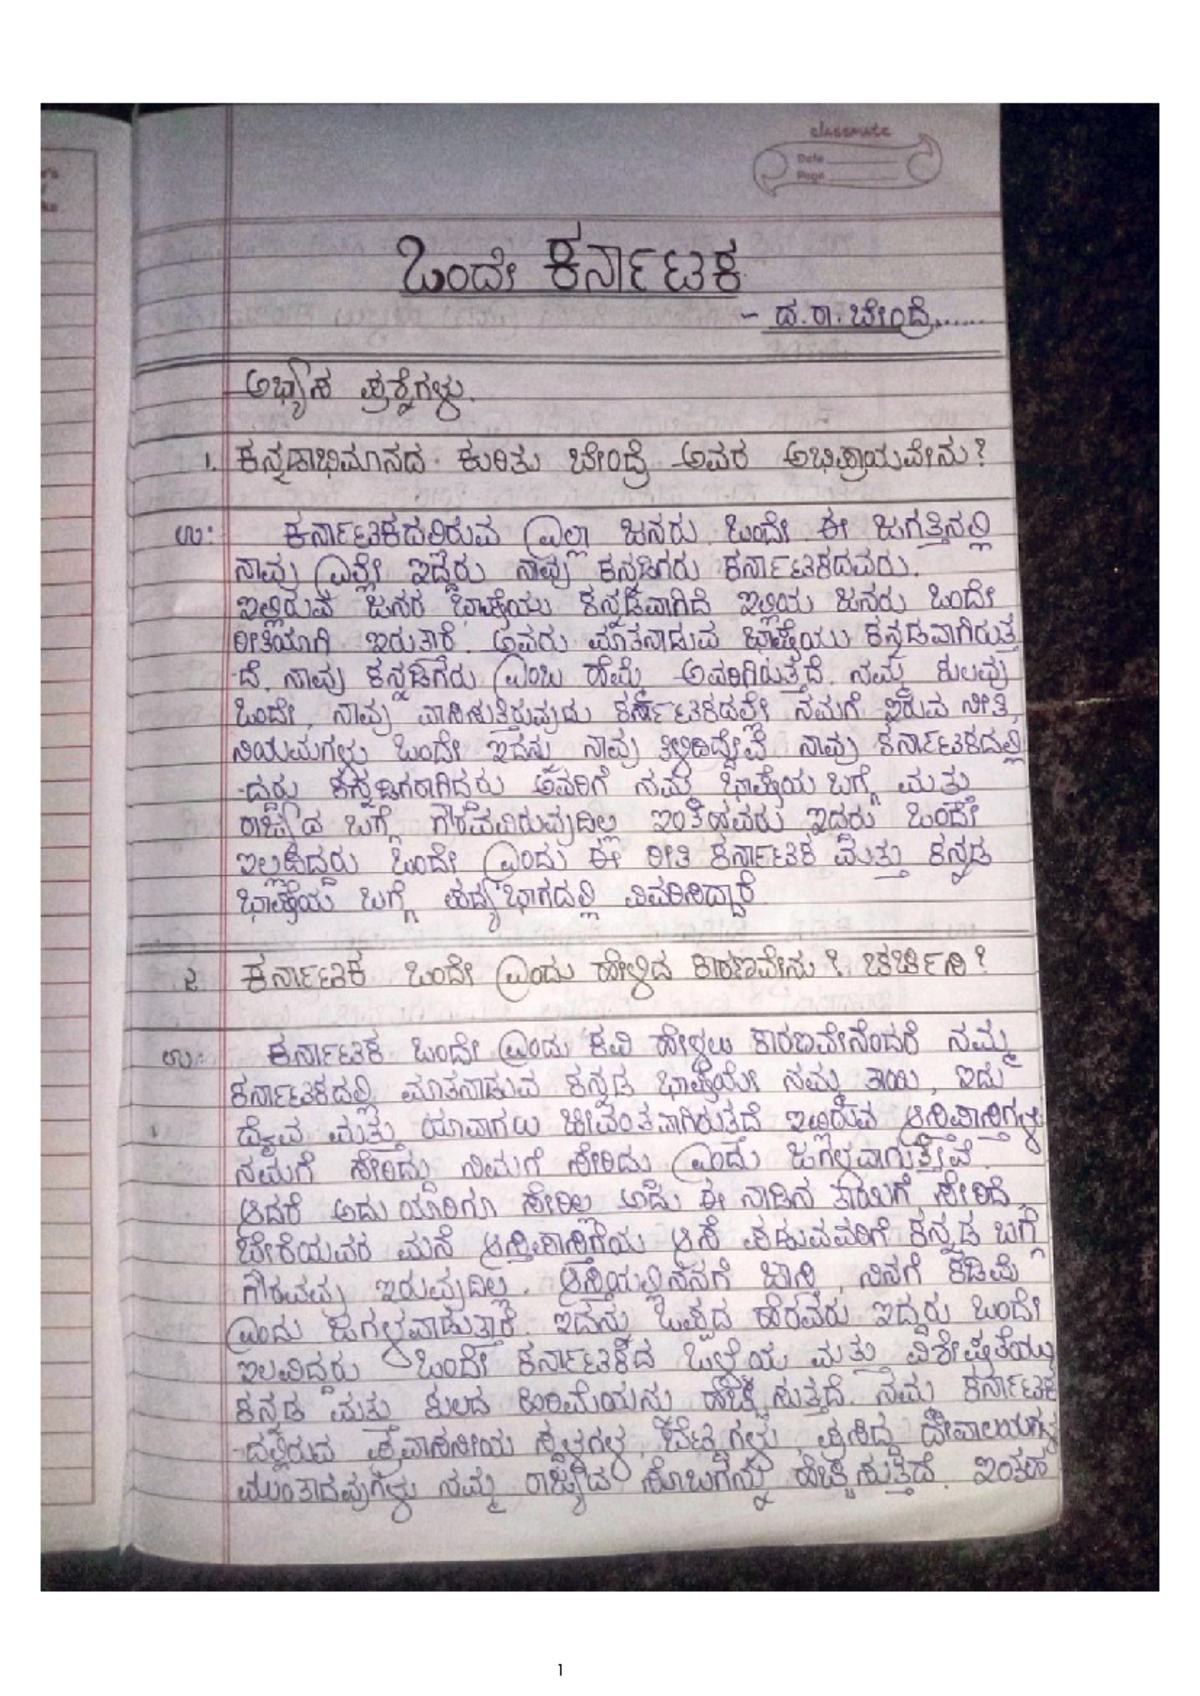 classmate
Date
Page
ಒಂದೇ ಕರ್ನಾಟಕ
- ದ.ರಾ.ಬೇಂದ್ರೆ......
ಅಭ್ಯಾಸ ಪ್ರಶ್ನೆಗಳು.
1. ಕನ್ನಡಾಭಿಮಾನದ ಕುರಿತು ಬೇಂದ್ರೆ ಅವರ ಅಭಿಪ್ರಾಯವೇನು?
ಉ: ಕರ್ನಾಟಕದಲಿರುವ ಎಲ್ಲಾ ಜನರು ಒಂದೇ ಈ ಜಗತ್ತಿನಲ್ಲಿ
ನಾವು ಎಲ್ಲೇ ಇದ್ದರು ನಾವು ಕನ್ನಡಿಗರು ಕರ್ನಾಟಕದವರು.
ಇಲ್ಲಿರುವ ಜನರ ಭಾಷೆಯು ಕನ್ನಡವಾಗಿದೆ ಇಲ್ಲಿಯ ಜನರು ಒಂದೇ
ರೀತಿಯಾಗಿ ಇರುತಾರೆ. ಅವರು ಮಾತನಾಡುವ ಭಾಷೆಯು ಕನ್ನಡವಾಗಿರುತ್ತ
-ದೆ. ನಾವು ಕನ್ನಡಿಗರು ಎಂಬ ಹೆಮ್ಮೆ ಅವರಿಗಿರುತ್ತದೆ. ನಮ್ಮ ಕುಲವು
ಒಂದೇ, ನಾವು ವಾಸಿಸುತ್ತಿರುವುದು ಕರ್ನಾಟಕದಲ್ಲೇ ನಮಗೆ ಇರುವ ನೀತಿ,
ನಿಯಮಗಳು ಒಂದೇ ಇದನ್ನು ನಾವು ತಿಳಿದಿದ್ದೇವೆ ನಾವು ಕರ್ನಾಟಕದಲ್ಲಿ
-ದ್ದರು ಕನ್ನಡಿಗರಾಗಿದರು ಅವರಿಗೆ ನಮ್ಮ ಭಾಷೆಯ ಬಗ್ಗೆ ಮತು
ರಾಜ್ಯದ ಬಗ್ಗೆ ಗೌರವವಿರುವುದಿಲ್ಲ ಇಂತಹವರು ಇದರು ಒಂದೇ
ಇಲ್ಲದಿದ್ದರು ಒಂದೇ ಎಂದು ಈ ರೀತಿ ಕರ್ನಾಟಕ ಮತ್ತು ಕನ್ನಡ
ಭಾಷೆಯ ಬಗ್ಗೆ ಪದ್ಯಭಾಗದಲ್ಲಿ ವಿವರಿಸಿದ್ದಾರೆ
2. ಕರ್ನಾಟಕ ಒಂದೇ ಎಂದು ಹೇಳಿದ ಕಾರಣವೇನು? ಚರ್ಚಿಸಿ?
ಉ: ಕರ್ನಾಟಕ ಒಂದೇ ಎಂದು ಕವಿ ಹೇಳಲು ಕಾರಣವೇನೆಂದರೆ ನಮ್ಮ
ಕರ್ನಾಟಕದಲ್ಲಿ ಮಾತನಾಡುವ ಕನ್ನಡ ಭಾಷೆಯೇ ನಮ್ಮ ತಾಯಿ, ಇದು
ದೈವ ಮತ್ತು ಯಾವಾಗಲು ಜೀವಂತವಾಗಿರುತದೆ ಇಲ್ಲಿರುವ ಆಸ್ತಿಪಾಸ್ತಿಗಳು
ನಮಗೆ ಸೇರಿದ್ದು ನಿಮಗೆ ಸೇರಿದು ಎಂದು ಜಗಳವಾಡುತ್ತೇವೆ.
ಆದರೆ ಅದು ಯಾರಿಗೂ ಸೇರಿಲ್ಲ ಅದು ಈ ನಾಡಿನ ತಾಯಿಗೆ ಸೇರಿದೆ
ಬೇರೆಯವರ ಮನೆ ಆಸ್ತಿಪಾಸ್ತಿಗೆಯ ಆಸೆ ಪಡುವವರಿಗೆ ಕನ್ನಡ ಬಗ್ಗೆ
ಗೌರವವು ಇರುವುದಿಲ್ಲ. ಆಸ್ತಿಯಲ್ಲಿ ನನಗೆ ಜಾಸಿ, ನಿನಗೆ ಕಡಿಮೆ
ಎಂದು ಜಗಳವಾಡುತ್ತಾರೆ. ಇದನ್ನು ಒಪ್ಪದ ಹೆರವರು ಇದ್ದರು ಒಂದೇ
ಇಲವಿದ್ದರು ಒಂದೇ ಕರ್ನಾಟಕದ ಒಳ್ಳೆಯ ಮತ್ತು ವಿಶೇಷತೆಯು
ಕನ್ನಡ ಮತು ಕುಲದ ಹಿರಿಮೆಯನು ಹೆಚ್ಚಿಸುತ್ತದೆ. ನಮ್ಮ ಕರ್ನಾಟಕ
-ದಲ್ಲಿರುವ ಪ್ರವಾಸನೀಯ ಸ್ಥಳಗಳ, ಪ್ರಸಿದ್ಧ ದೇವಾಲಯಗಳ
ಮುಂತಾದವುಗಳು ನಮ್ಮ ರಾಜ್ಯದ ಸೊಬಗನ್ನು ಹೆಚ್ಚಿಸುತ್ತದೆ. ಇಂತಹ
1